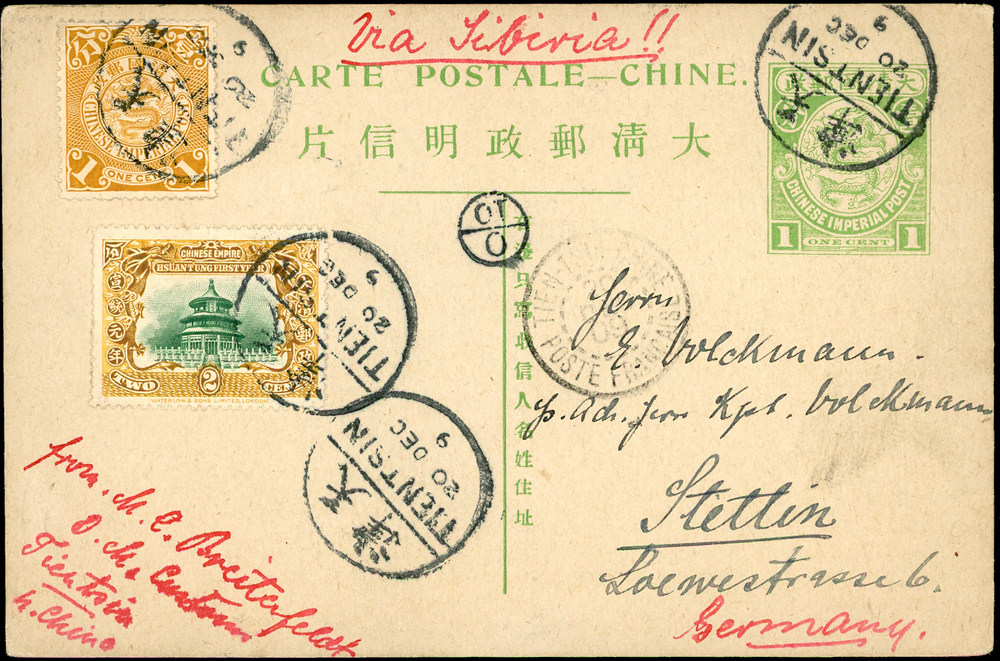 Via Sibiria!!
CARTE POSTALE—CHINE.
片信明政郵淸大
CHINESE IMPERIAL POST
1 ONE CENT 1
1 ONE CENT 1
CHINESE EMPIRE
HSUAN TUNG FIRST YEAR
TWO 2 CENTS
WATERLOW & SONS LIMITED, LONDON
TIENTSIN
20 DEC
9
天津
TIENTSIN
20 DEC
9
TIENTSIN
20 DEC
9
天津
OT
O
POSTE FRANCAISE
只寫收信人名姓住址
Herrn
E. Volckmann.
p. Adr. Herrn Kpt. Volckmann
Stettin
Loewestrasse 6.
Germany.
from. M. C. Breitenfeldt
Tientsin
N. China